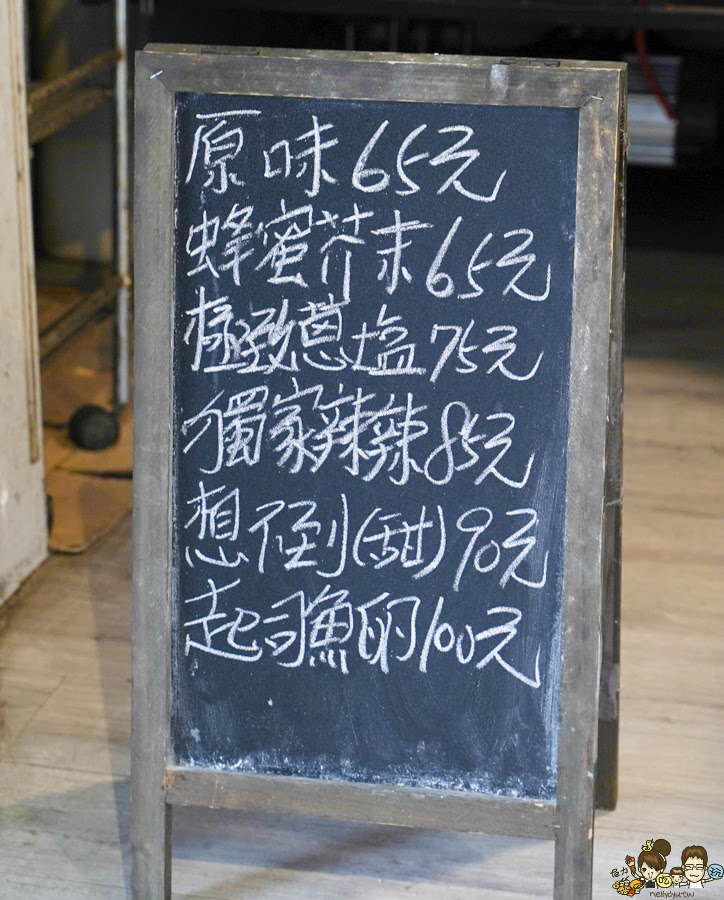 原味65元
蜂蜜芥末65元
極致蔥塩75元
獨家辣辣85元
想倒(甜)90元
起司魚卵100元
nellydyu.tw